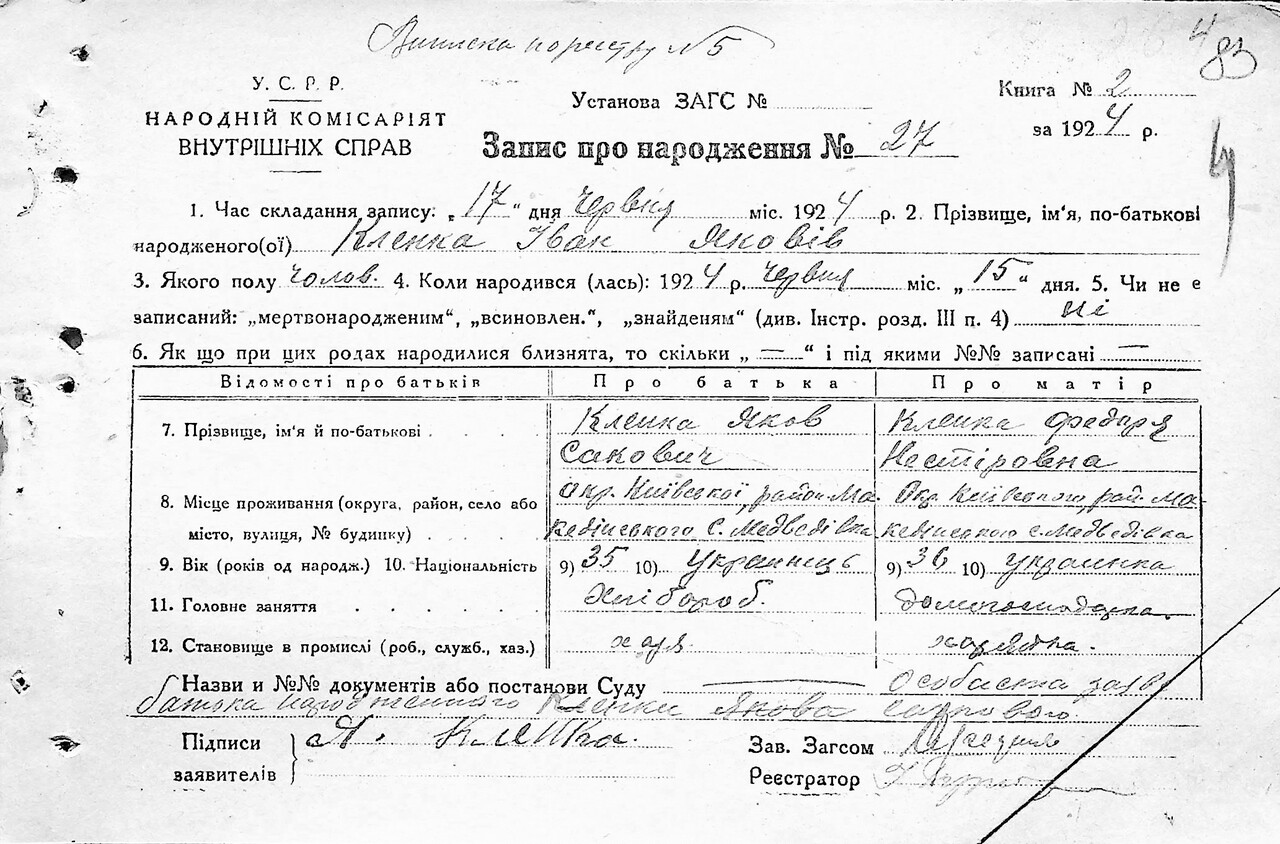 Виписка по реєстру № 5
4
83
У. С. Р. Р.
НАРОДНІЙ КОМІСАРІЯТ
ВНУТРІШНІХ СПРАВ
Установа ЗАГС №
Запис про народження № 27
Книга № 2
за 1924 р.
1. Час складання запису: „17“ дня Червня міс. 1924 р. 2. Прізвище, ім'я, по-батькові
народженого(ої) Кленка Іван Яковів
3. Якого полу чолов. 4. Коли народився (лась): 1924 р. Червня міс. „15“ дня. 5. Чи не є
записаний: „мертвонародженим“, „всиновлен.“, „знайденям“ (див. Інстр. розд. III п. 4) ні
6. Як що при цих родах народилися близнята, то скільки „—“ і під якими №№ записані —
Відомості про батьків Про батька Про матір
7. Прізвище, ім'я й по-батькові Кленка Яков Кленка Федоря
Сакович Нестіровна
8. Місце проживання (округа, район, село або Окр. Київської, район Ма- Окр. Київського, рай. Ма-
місто, вулиця, № будинку) с. Медведівка с. Медведівка
9. Вік (років од народж.) 10. Національність 9) 35 10) Украинець 9) 36 10) Украинка
11. Головне заняття Хлібороб.
12. Становище в промислі (роб., служб., хаз.)
Назви и №№ документів або постанови Суду — Особиста заява
батька народженного Кленки Якова
Підписи Я. Кленка.
заявителів
Зав. Загсом
Реєстратор